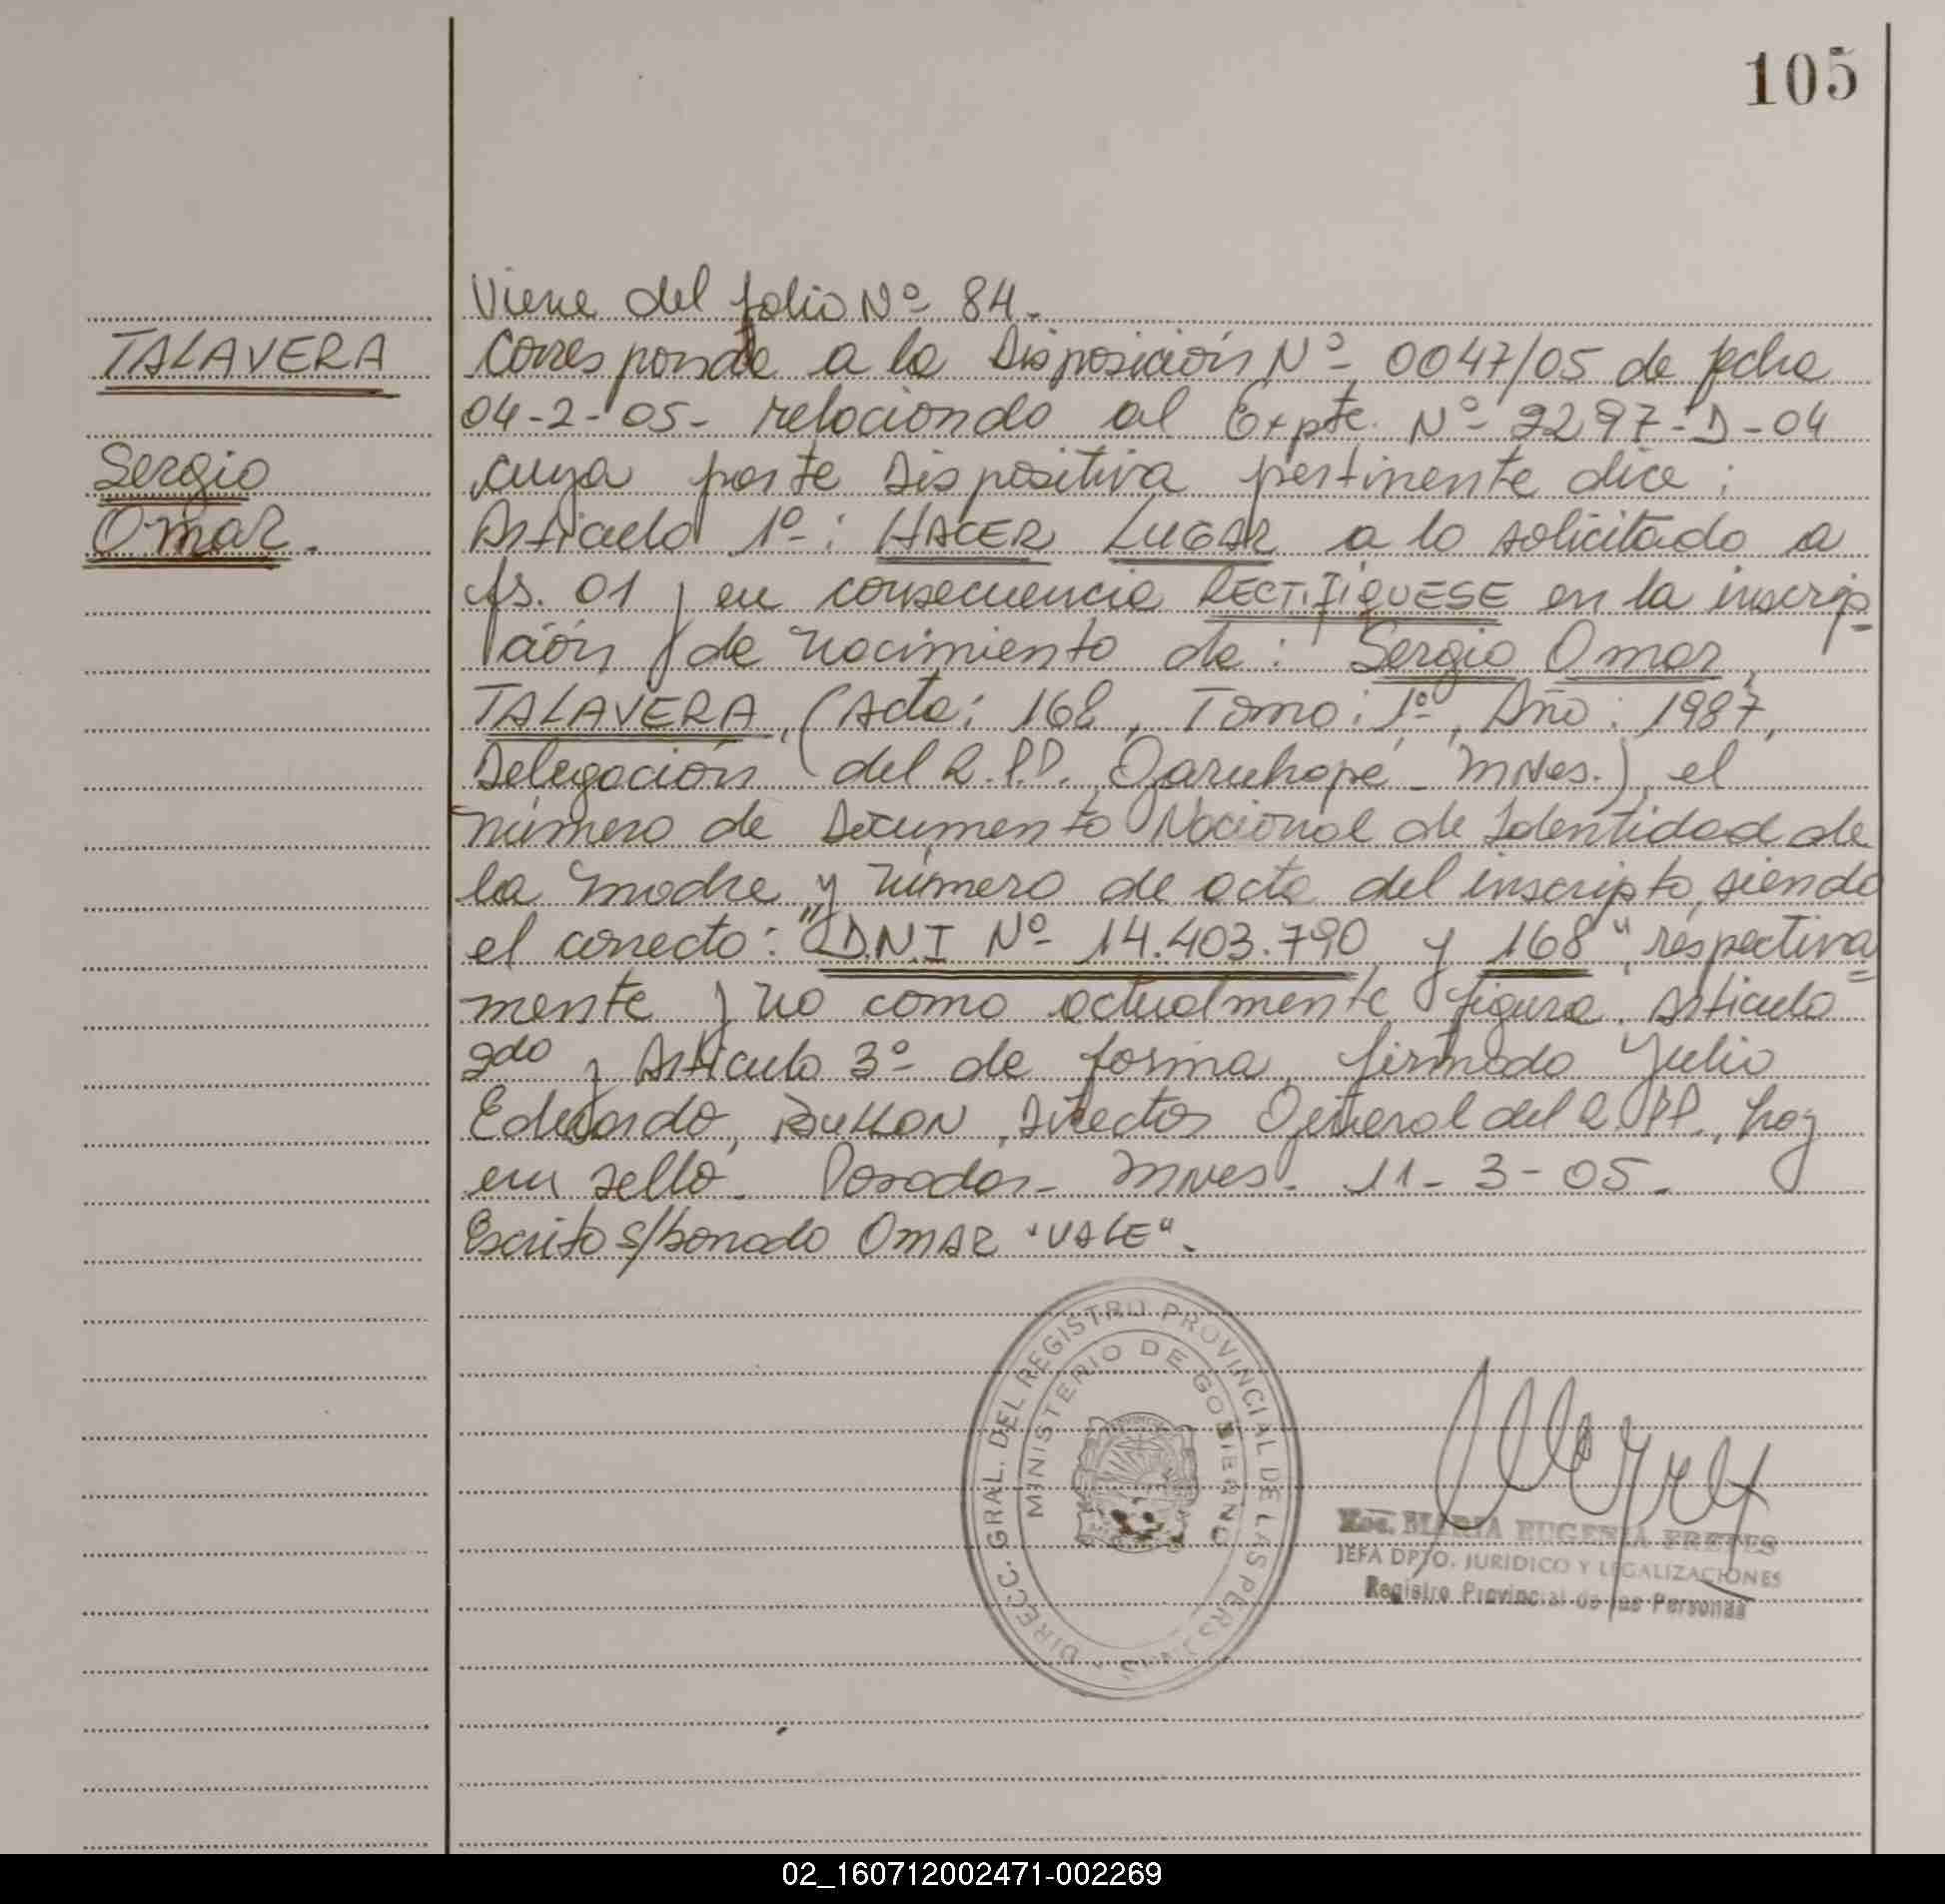 105
Viene del folio Nº 84.
TALAVERA
Corresponde a la Disposición Nº 0047/05 de fecha
04-2-05- relacionado al Expte. Nº 2297-D-04
Sergio
cuya parte Dispositiva pertinente dice:
Omar.
Artículo 1º: HACER LUGAR a lo solicitado a
fs. 01 y en consecuencia RECTIFIQUESE en la inscrip
ción de nacimiento de: Sergio Omar
TALAVERA, (Acta: 168, Tomo: 1º, Año: 1987,
Delegación del R.P.P. Garuhapé - Mnes.), el
número de Documento Nacional de Identidad de
la madre y número de acta del inscripto, siendo
el correcto: "D.N.I Nº 14.403.790 y 168", respectiva
mente y no como actualmente figura. Artículo
2do y Artículo 3º de forma, firmado Julio
Eduardo, Director General del R.P.P., hay
un sello. Posadas - Mnes. 11-3-05.
Escrito s/borrado OMAR "VALE".
DIRECC. GRAL. DEL REGISTRO PROVINCIAL DE LAS PERSONAS
MINISTERIO DE GOBIERNO
MARIA EUGENIA FRETES
JEFA DPTO. JURIDICO Y LEGALIZACIONES
Registro Provincial de las Personas
02_160712002471-002269